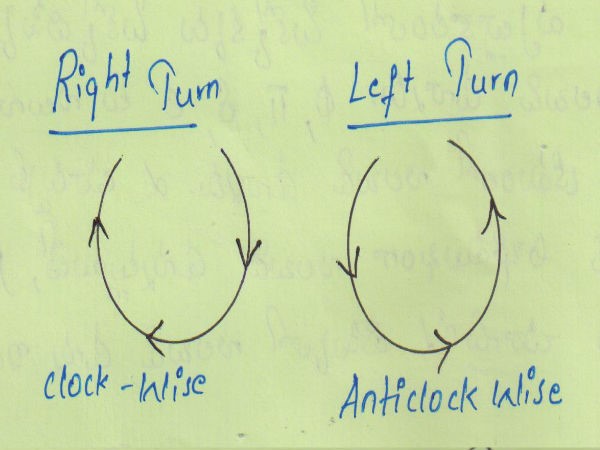 Right Turn
Left Turn
Clock-Wise
Anticlock Wise